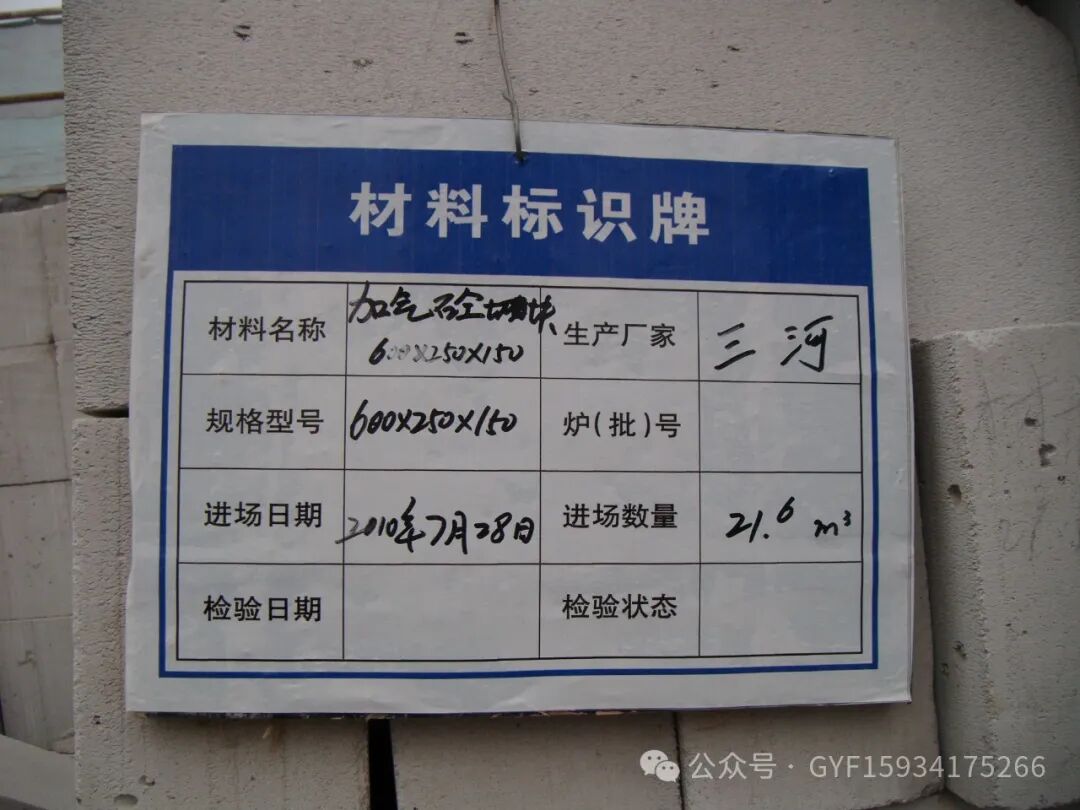 材料标识牌
材料名称 加气砼砌块 600×250×150 生产厂家 三河
规格型号 600×250×150 炉(批)号
进场日期 2010年7月28日 进场数量 21.6 m³
检验日期 检验状态
公众号·GYF15934175266